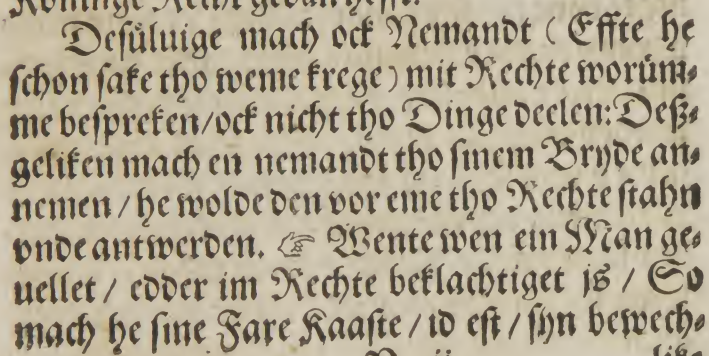 Koninge Recht gedan hefft.
Desüluige mach ock Nemandt ( Effte he
schon sake tho weme krege ) mit Rechte worüm⸗
me bespreken / ock nicht tho Dinge deelen: Deß⸗
geliken mach en nemandt tho sinem Bryde an⸗
nemen / he wolde den vor eme tho Rechte stahn
vnde antwerden. ☞ Wente wen ein Man ge⸗
uellet / edder im Rechte beklachtiget is / So
mach he sine Fare Kaaste / id est / syn bewech⸗